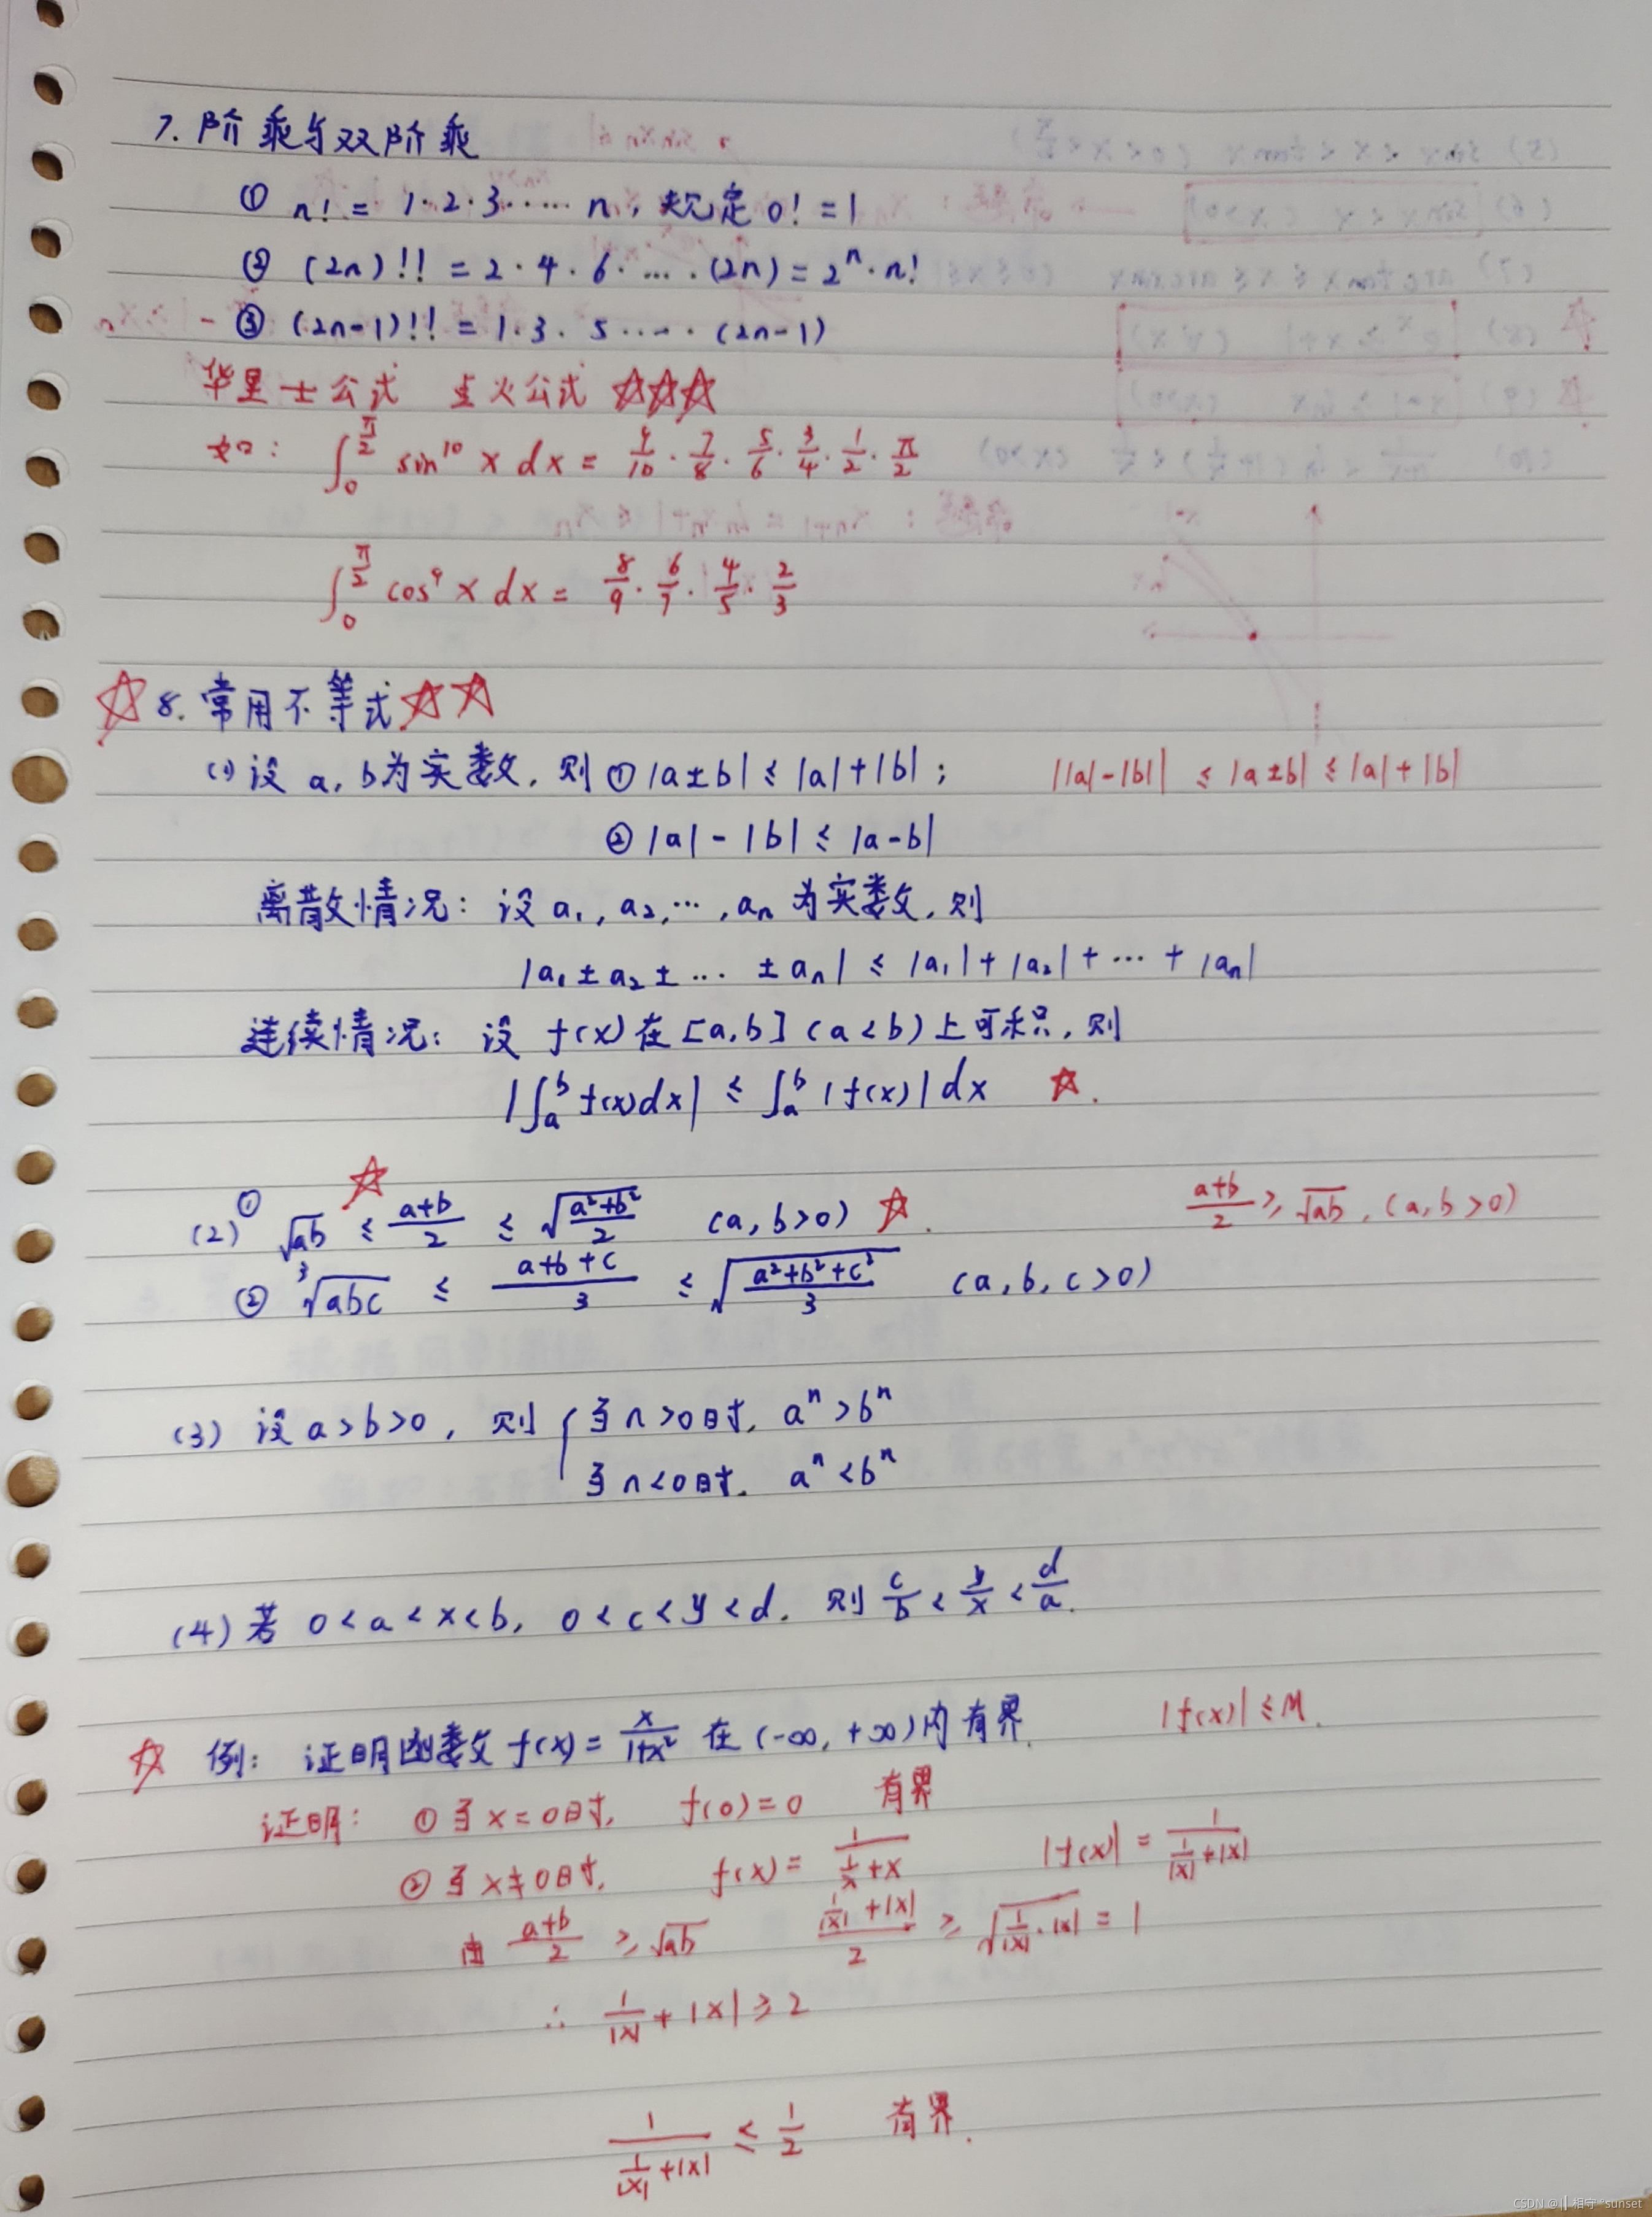 7. 阶乘与双阶乘
① n! = 1·2·3····· n, 规定 0! = 1
② (2n)!! = 2·4·6· … ·(2n) = 2ⁿ·n!
- ③ (2n-1)!! = 1·3·5····· (2n-1)
华里士公式 点火公式 ☆☆☆
如: ∫₀^(π/2) sin¹⁰ x dx = 9/10 · 7/8 · 5/6 · 3/4 · 1/2 · π/2
∫₀^(π/2) cos⁹ x dx = 8/9 · 6/7 · 4/5 · 2/3
☆ 8. 常用不等式 ☆☆
(1) 设 a, b为实数, 则 ① |a±b| ≤ |a|+|b| ; ||a|-|b|| ≤ |a±b| ≤ |a|+|b|
② |a| - |b| ≤ |a-b|
离散情况: 设 a₁, a₂, ⋯, aₙ 为实数, 则
|a₁ ± a₂ ± ⋯ ± aₙ| ≤ |a₁| + |a₂| + ⋯ + |aₙ|
连续情况: 设 f(x) 在 [a,b] (a<b) 上可积, 则
|∫ₐᵇ f(x)dx| ≤ ∫ₐᵇ |f(x)| dx ☆.
(2) ① √ab ≤ (a+b)/2 ≤ √((a²+b²)/2) (a, b>0) ☆. (a+b)/2 ≥ √ab, (a, b >0)
☆
② ³√abc ≤ (a+b+c)/3 ≤ √((a²+b²+c²)/3) (a, b, c>0)
(3) 设 a>b>0, 则 { 当 n>0时, aⁿ>bⁿ
当 n<0时. aⁿ<bⁿ
(4) 若 0<a<x<b, 0<c<y<d. 则 c/b < y/x < d/a.
☆ 例: 证明函数 f(x) = x/(1+x²) 在 (-∞, +∞) 内有界. |f(x)| ≤ M.
证明: ① 当 x=0时, f(0)=0 有界
② 当 x≠0时, f(x) = 1/(1/x + x) |f(x)| = 1/(1/|x| + |x|)
由 (a+b)/2 ≥ √ab (1/|x| + |x|)/2 ≥ √(1/|x| · |x|) = 1
∴ 1/|x| + |x| ≥ 2
1/(1/|x| + |x|) ≤ 1/2 有界.
CSDN @||相守°sunset